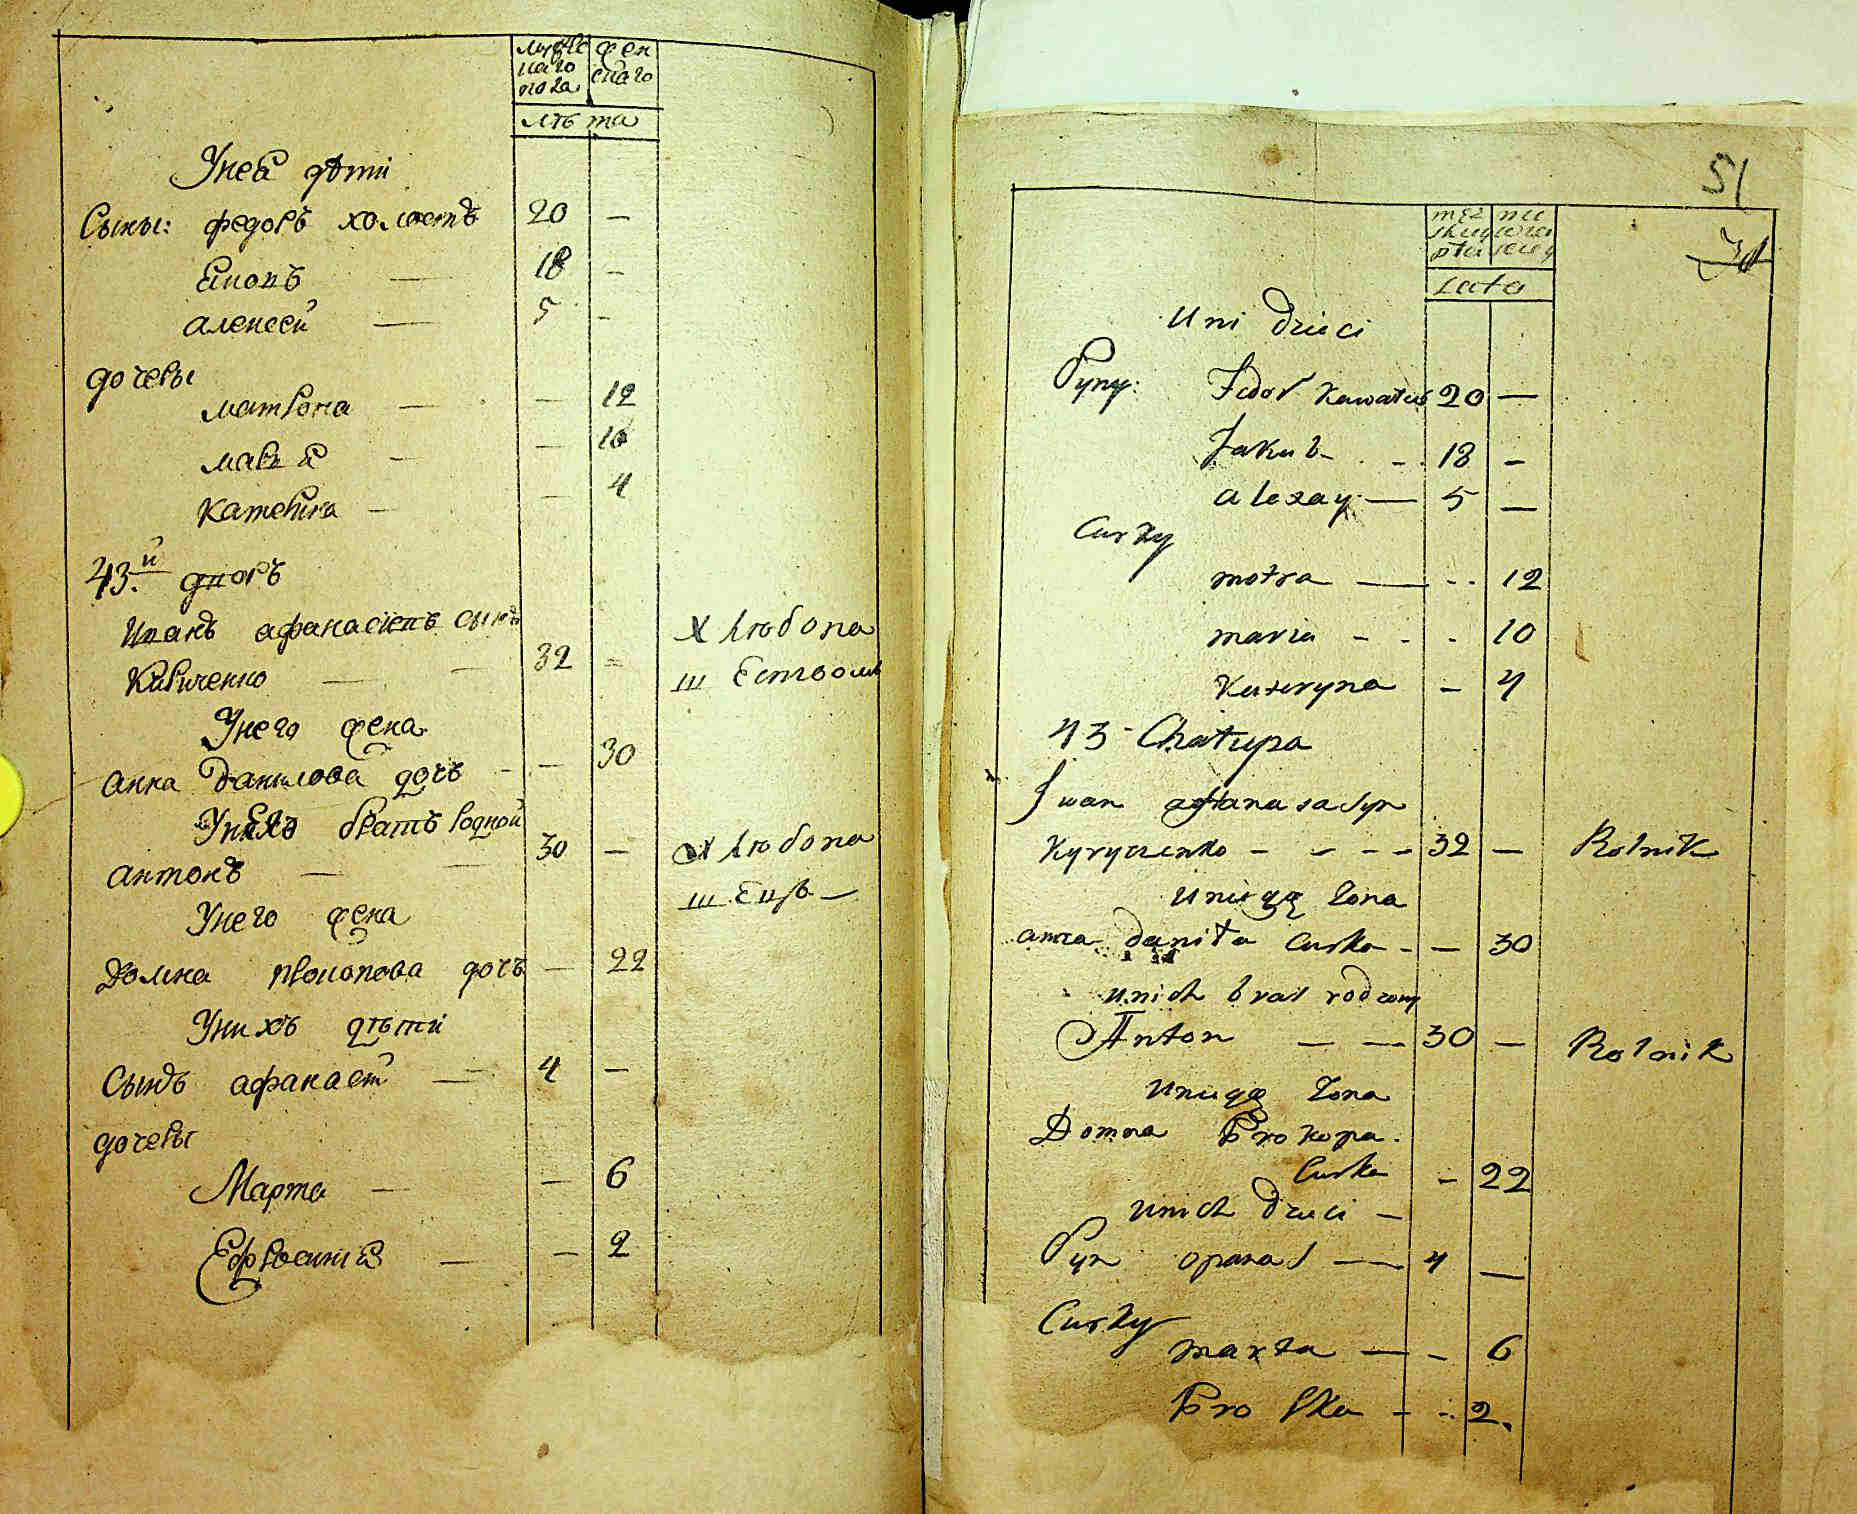 мужес фен
каго скаго
пола
лѣта
Унеи дѣти
Сыны: федоръ холостъ 20 —
18 —
алексей — 5 –
дочеры
матрона — — 12
мария – — 10
катерина – — 4
43.й дворъ
Иванъ афанасіевъ сынъ
Кириченко — 32 – Хлѣбопа
шествомъ
Унего жена
анна Данилова дочь – — 30
Унихъ братъ родной
антонъ — 30 — Хлѣбопа
Унего жена
Домна прокопова дочь — 22
Унихъ дѣти
Сынъ афанасій — 4 —
дочеры
Марта — — 6
Ефросинія — — 2
51
lata
Uni dzieci
Syny: Fedor Kawaler 20 —
Jakub - - 18 –
alexay — 5 —
Curky
motra — - - 12
maria - - - 10
Kateryna – 4
43 - Chałupa
Jwan affanasa Syn
Kyryczenko - - - - 32 — Rolnik
Uniego żona
anna daniła Curka - — 30
unich brat rodzony
Anton — — 30 — Rolnik
Uniego żona
Domna Prokopa
Curka – 22
Unich dzieci –
Syn opanas — 4 —
Curky
marta — - 6
Proska - - 2.